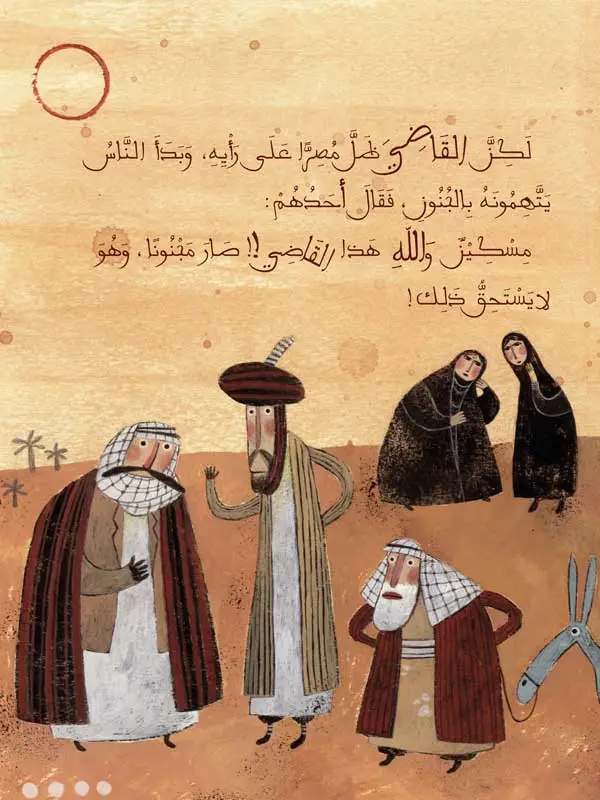 لَكِنَّ القَاضِيَ ظَلَّ مُصِرًّا عَلَى رَأْيِهِ، وَبَدَأَ النَّاسُ
يَتَّهِمُونَهُ بِالجُنُونِ، فَقَالَ أَحَدُهُمْ:
مِسْكِيْنٌ وَاللّهِ هَذا القَاضِي!! صَارَ مَجْنُونًا، وَهُوَ
لا يَسْتَحِقُّ ذَلِكَ!